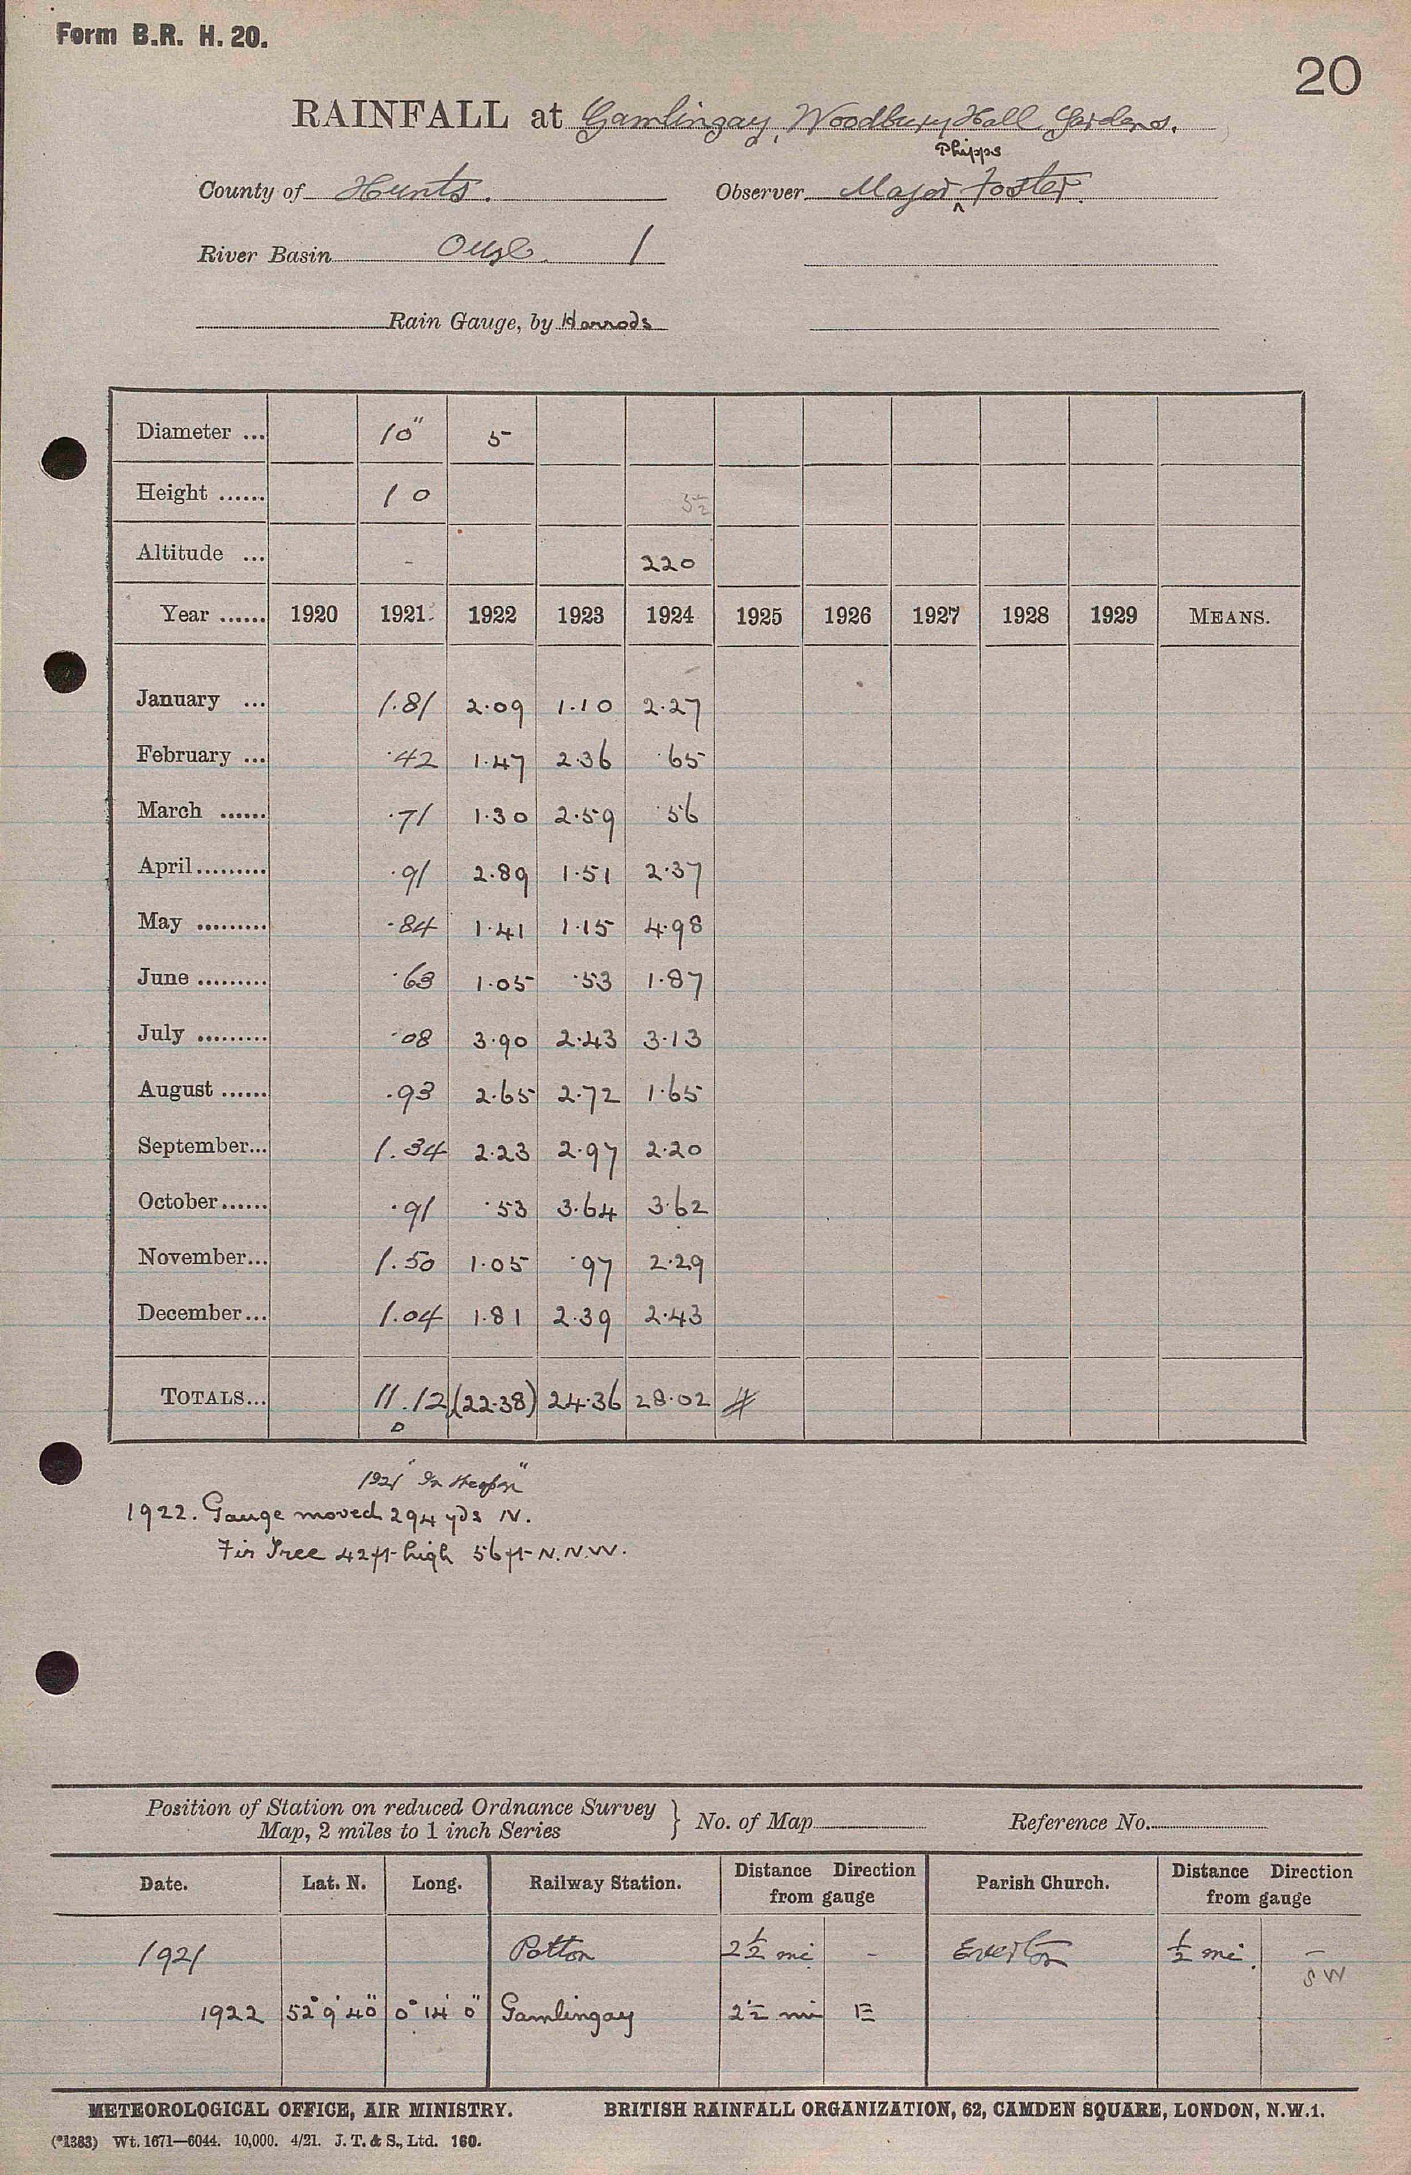 Form B.R. H. 20.
20
RAINFALL at Gamlingay, Woodbury Hall Gardens.
Phipps
County of Hunts. Observer Major ^ Foster.
River Basin Ouse. 1
Rain Gauge, by Harrods
Diameter ... 10" 5
Height ...... 10 5½
Altitude ... - 220
Year ...... 1920 1921. 1922 1923 1924 1925 1926 1927 1928 1929 MEANS.
January ... 1.81 2.09 1.10 2.27
February ... .42 1.47 2.36 .65
March ...... .71 1.30 2.59 .56
April......... .91 2.89 1.51 2.37
May ......... .84 1.41 1.15 4.98
June ......... .63 1.05 .53 1.87
July ......... .08 3.90 2.43 3.13
August ...... .93 2.65 2.72 1.65
September... 1.34 2.23 2.97 2.20
October...... .91 .53 3.64 3.62
November... 1.50 1.05 .97 2.29
December... 1.04 1.81 2.39 2.43
TOTALS... 11.12 (22.38) 24.36 28.02 #
D
1921
1922. Gauge moved 294 yds N.
Fir Tree 42 ft high 56 ft N.N.W.
Position of Station on reduced Ordnance Survey
Map, 2 miles to 1 inch Series } No. of Map Reference No.
Date. Lat. N. Long. Railway Station. Distance Direction from gauge Parish Church. Distance Direction from gauge
1921 Potton 2½ mi - Everton ½ mi. -
SW
1922 52° 9' 40" 0° 14' 0" Gamlingay 2½ mi E
METEOROLOGICAL OFFICE, AIR MINISTRY. BRITISH RAINFALL ORGANIZATION, 62, CAMDEN SQUARE, LONDON, N.W.1.
(*1383) Wt. 1671—6044. 10,000. 4/21. J. T. & S., Ltd. 160.